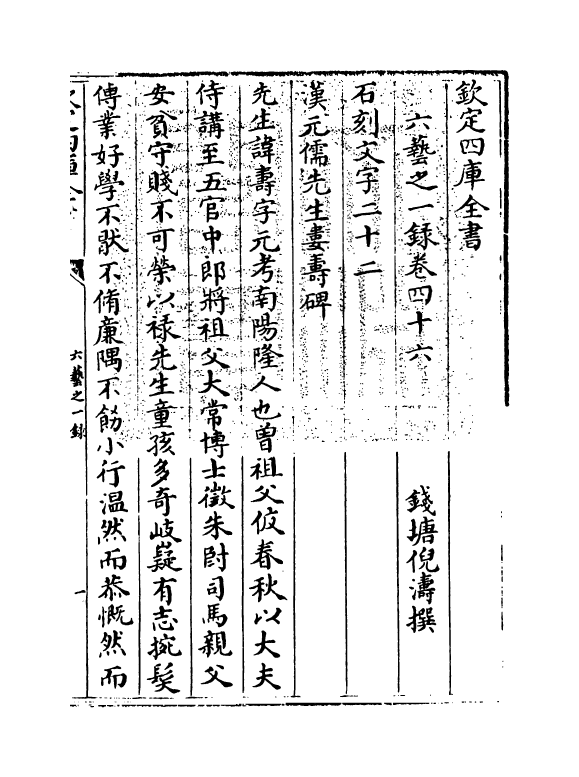 欽定四庫全書
六藝之一録卷四十六
錢塘倪濤撰
石刻文字二十二
漢元儒先生婁壽碑
先生諱壽字元考南陽隆人也曾祖父攸春秋以大夫
侍講至五官中郎將祖父大常博士徵朱尉司馬親父
安貧守賤不可榮以禄先生童孩多奇岐嶷有志捥髮
傳業好學不猒不脩廉隅不飭小行温然而恭慨然而
六藝之一録
一